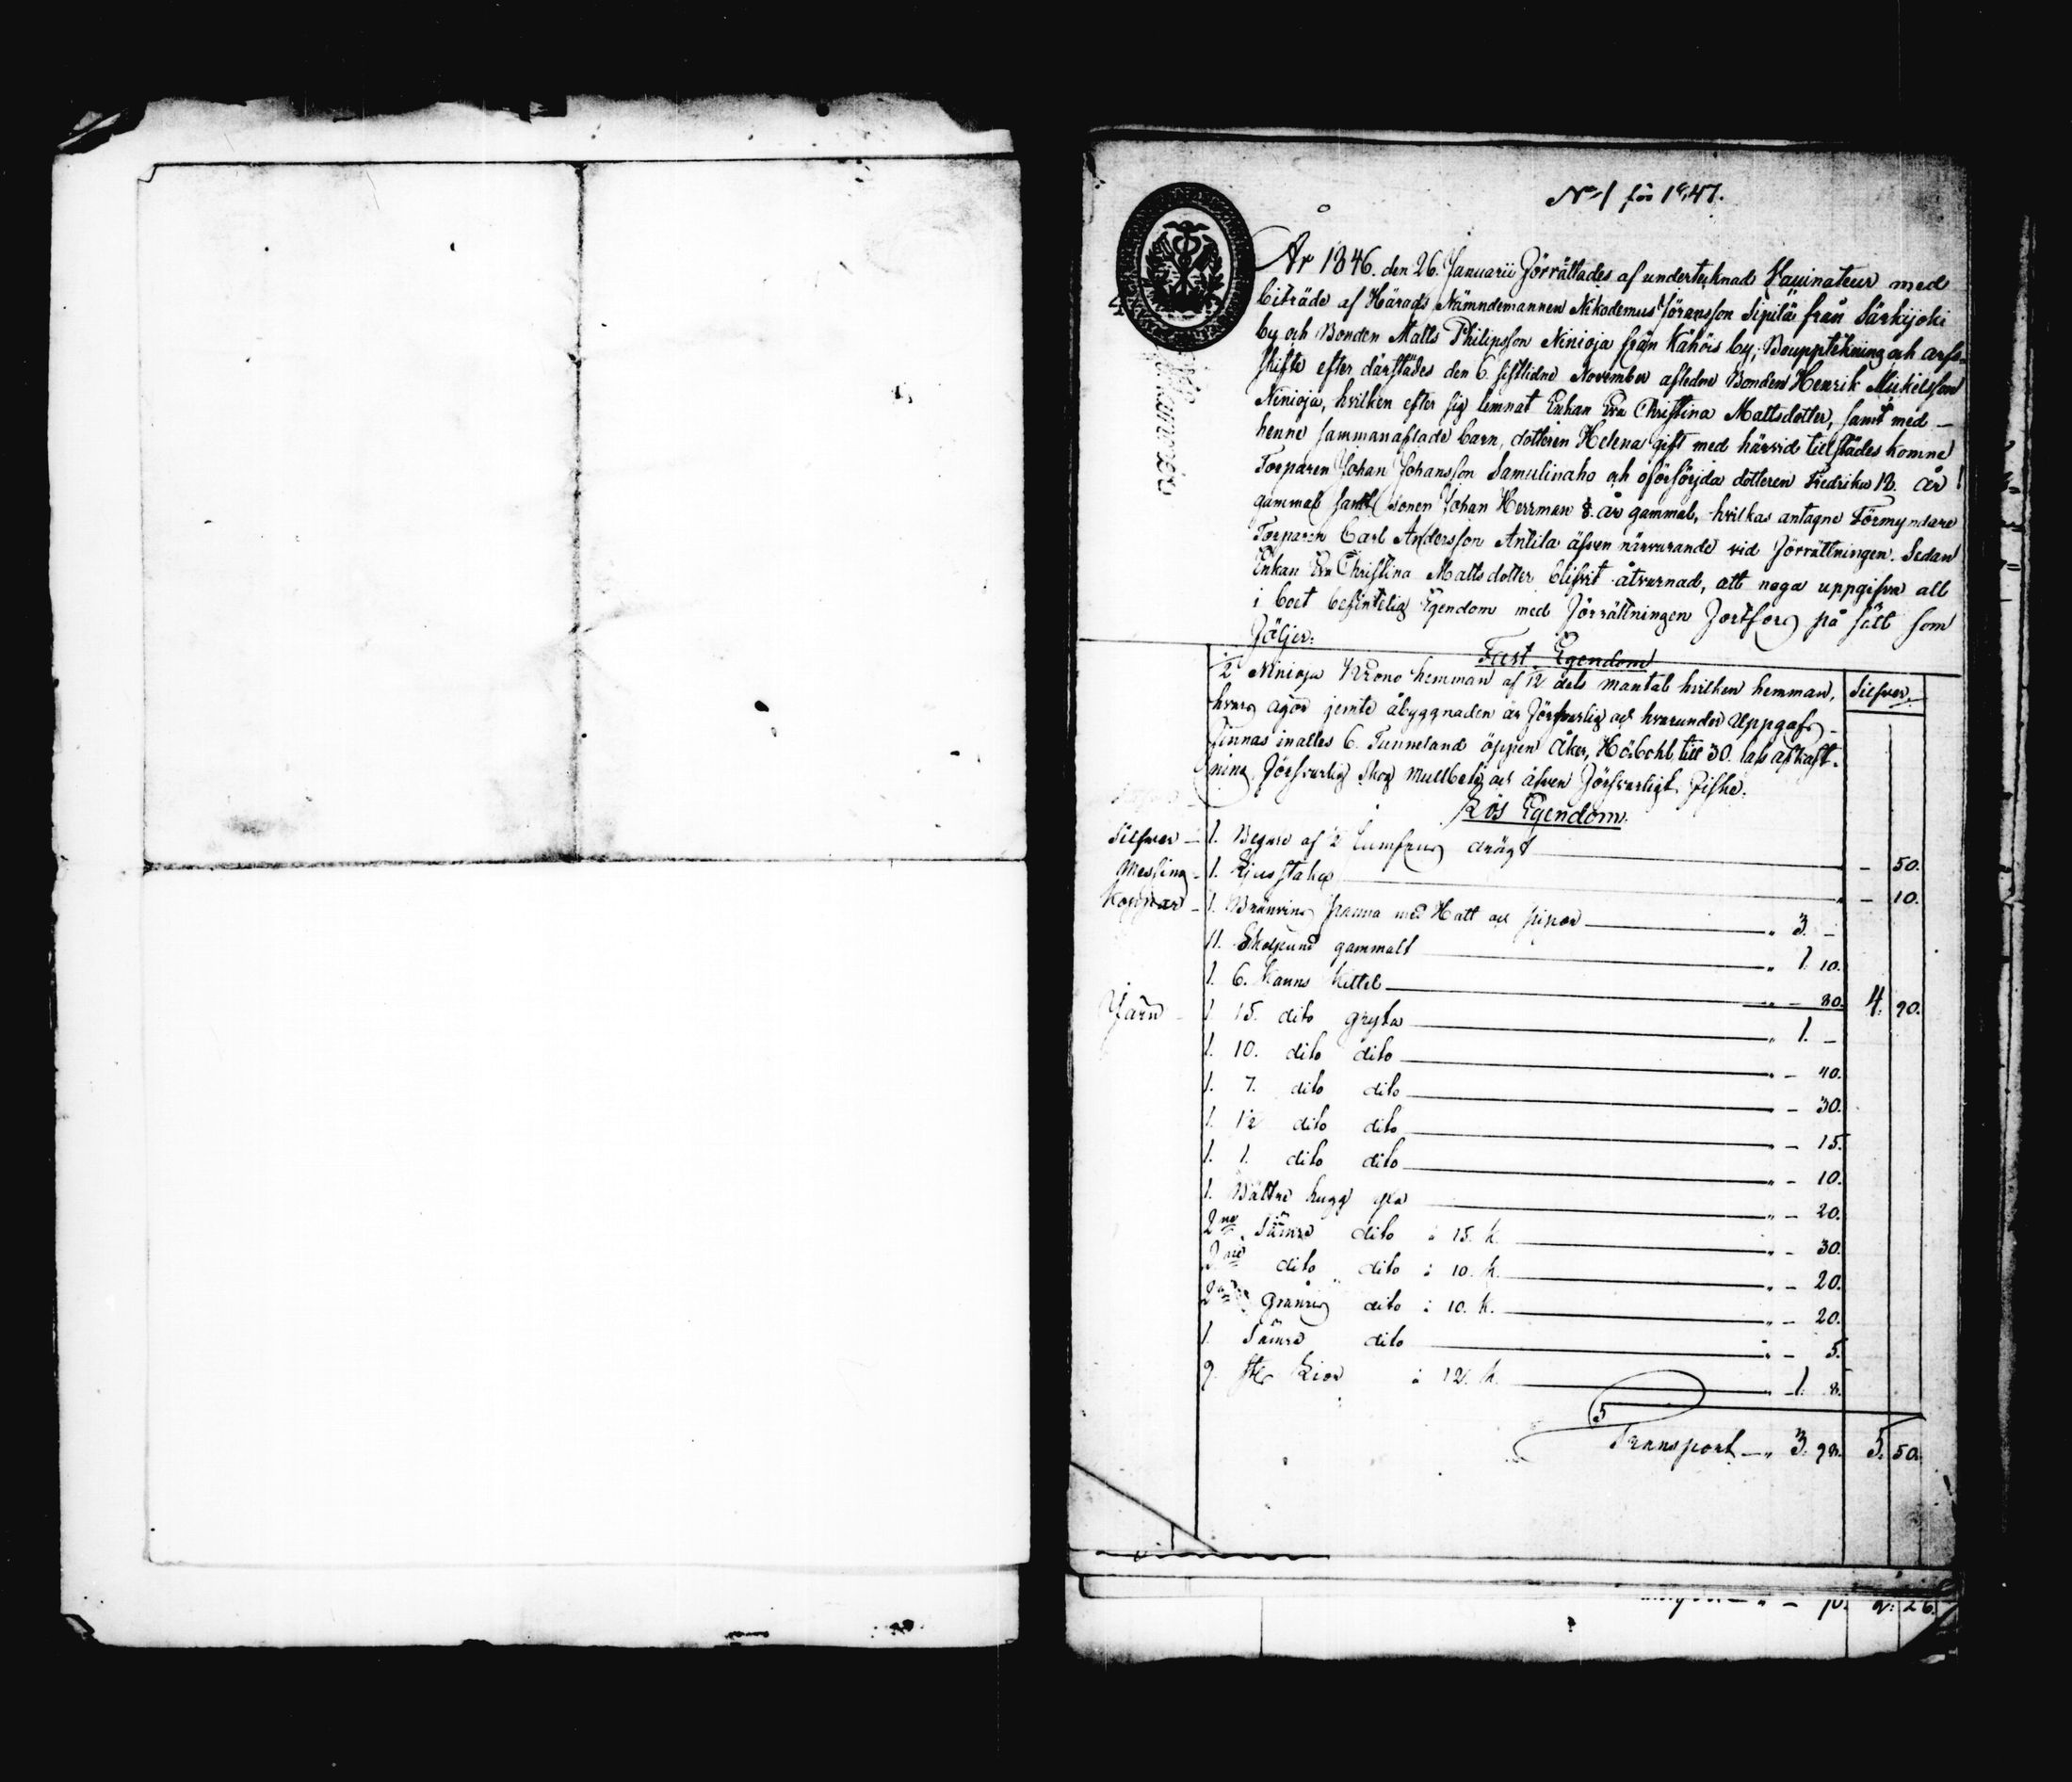 No 1 för 1847.
År 1846. den 26. Januarii förrättades af undertecknad Vaccinateur med
biträde af Härads Nämndemannen Nikodemus Jöransson Sipilä från Särkijoki
by och Bonden Matts Philipsson Ninioja från Kähöis by, Bouppteckning och arfs-
skifte efter därstädes den 6. sistlidne November aflednе Bonden Henrik Mickelsson
Ninioja, hvilken efter sig lemnat Enkan Eva Christina Mattsdotter, samt med
henne sammanaflade barn, dotteren Helena gift med härvid tillstädes komne
Torparen Johan Johansson Samulinaho och oförsörjda dotteren Fredrika 12. år
gammal samt sonen Johan Herrman 8. år gammal, hvilkas antagne Förmyndare
Torparen Carl Andersson Antila äfven närvarande vid förrättningen. Sedan
Enkan Eva Christina Mattsdotter blifvit åtvarnad, att noga uppgifva all
i boet befintelig Egendom med förrättningen fortfors på sätt som
följer:
Fast Egendom
Silfver
1/2 Ninioja Krono hemman af 12 dels mantal hvilken hemman,
hvars ägor jemte åbyggnaden är försvarlig och hvarunder uppgafs
finnas inalles 6. Tunneland öppen åker, Höbohl till 30. lass afkast-
ning försvarlig skog mulbete och äfven försvarligt fiske.
Lös Egendom.
Silfver – 1. Begare af 2 drägt – 50.
Messing – 1. Ljusstake – 10.
Koppar – 1. Bränvins panna med Hatt och pipor " 3. –
11. Skålpund gammalt " 1. 10.
1. 6. Kanns Kittel " – 80. 4. 90.
Järn – 1. 15. dito gryta " 1. –
1. 10. dito dito " – 40.
1. 7. dito dito " – 30.
1. 1 1/2 dito dito " – 15.
1. 1. dito dito " – 10.
1. Bättre hugg yxa " – 20.
2ne Sämre dito à 15. k. " – 30.
2ne dito dito à 10. k. " – 20.
2ne dito à 10. k. " – 20.
1. Sämre dito " – 5.
9. st Liar à 12. k. " 1. 8.
Transport " 3. 98. 5. 50.
" – 10. 9. 26.